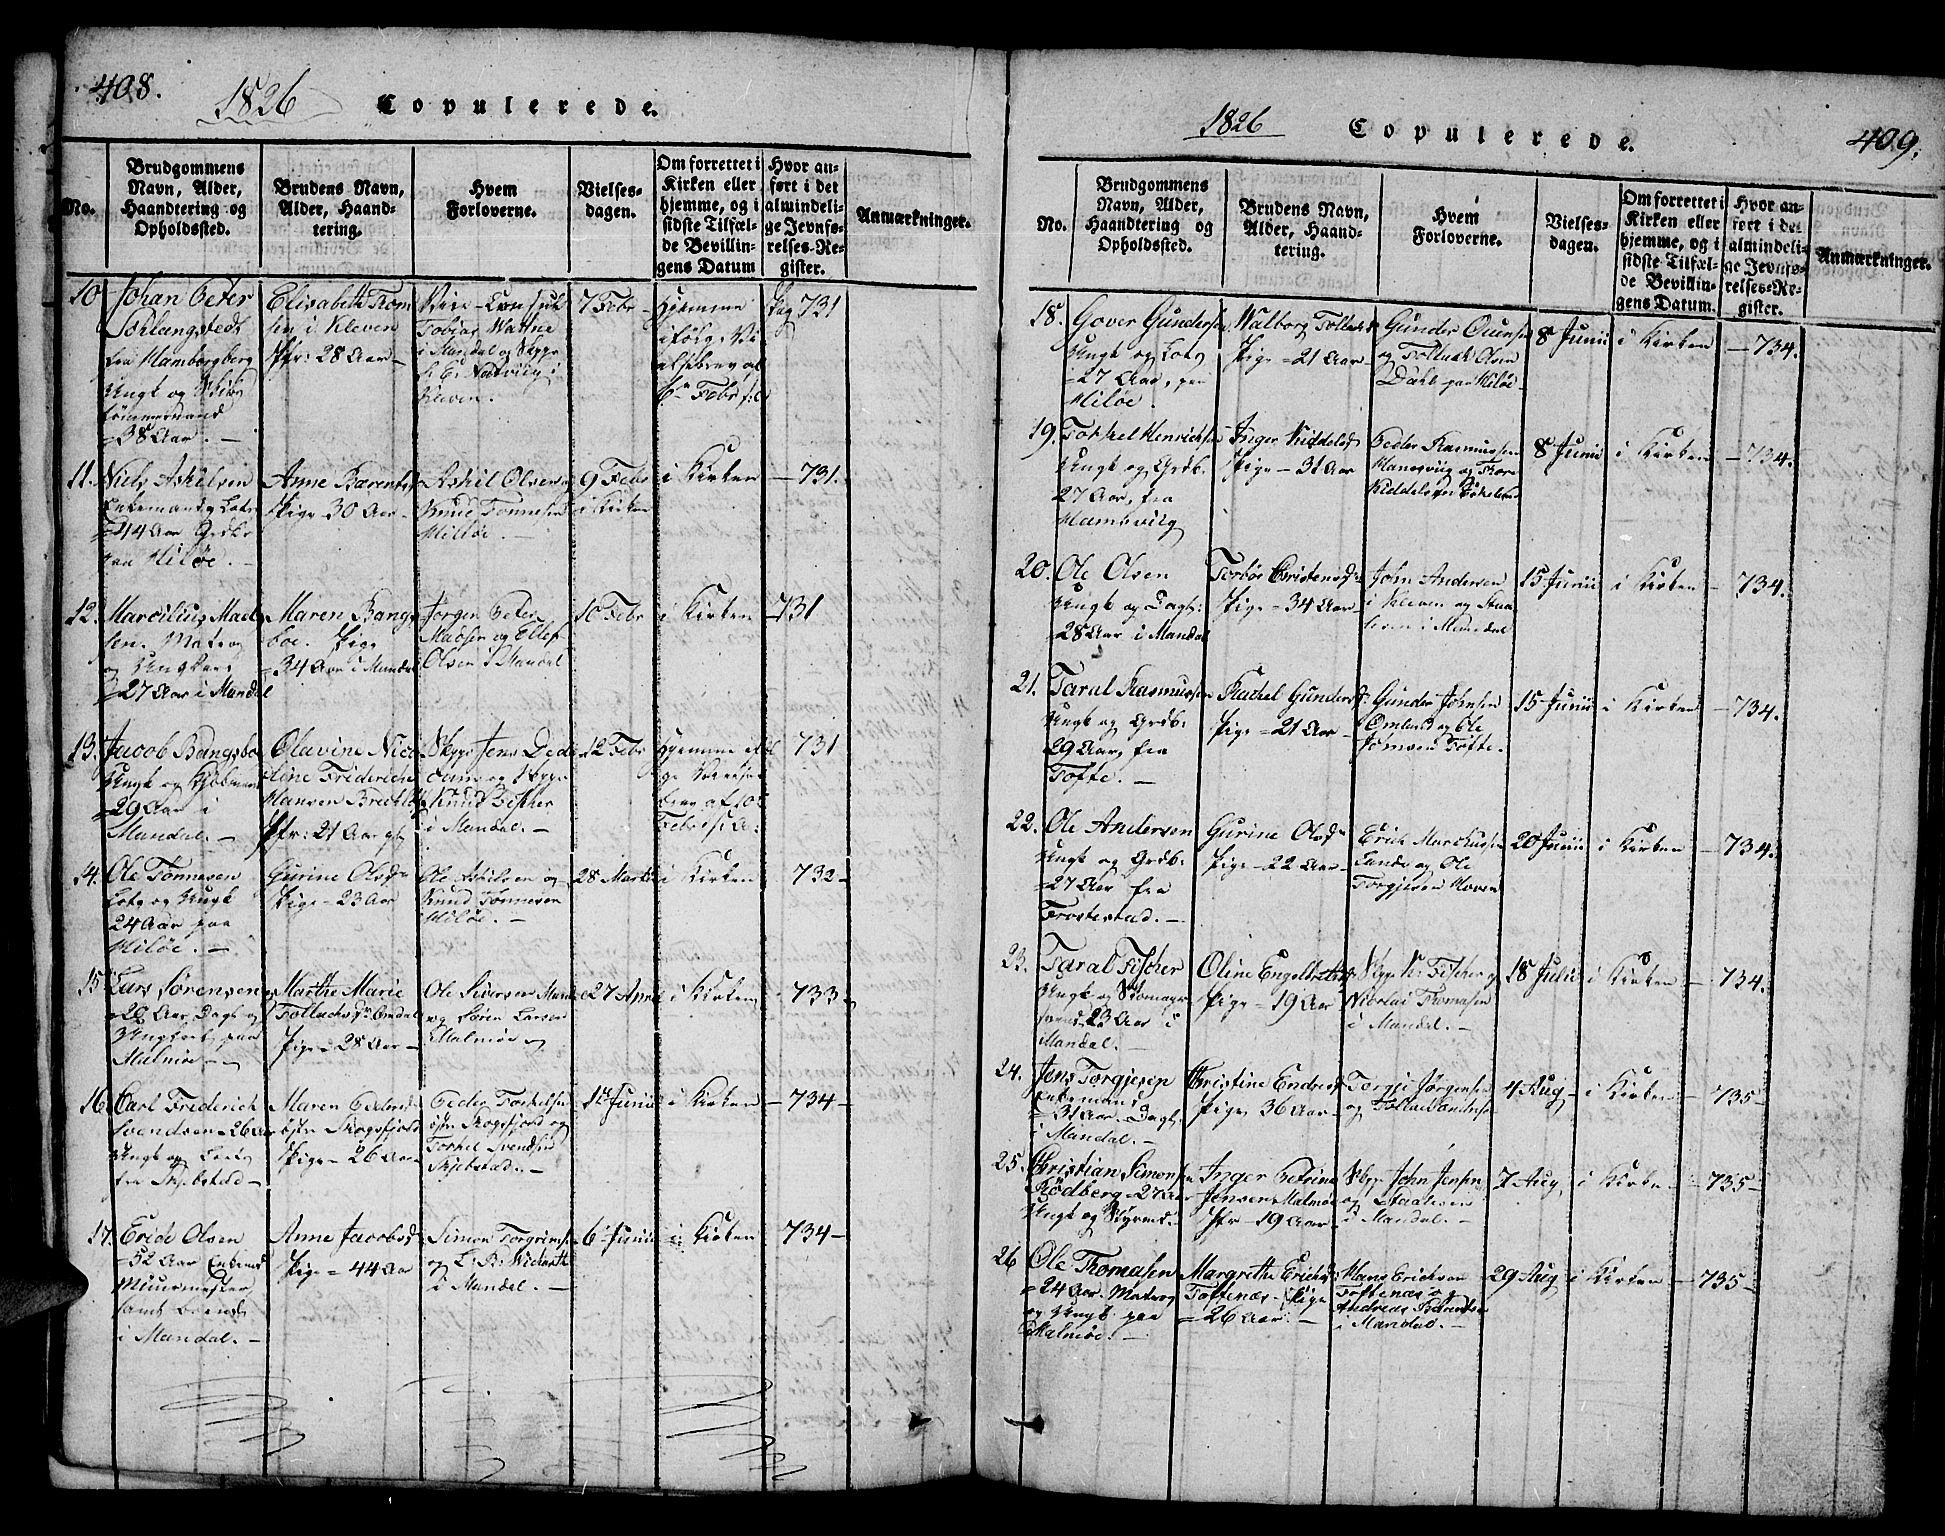 408.
1826
Copulerede.
No.
Brudgommens Navn, Alder, Haandtering og Opholdssted.
Brudens Navn, Alder, Haandtering.
Hvem Forloverne.
Vielsesdagen.
Om forrettet i Kirken eller hjemme, og i sidste Tilfælde Bevillingens Datum
Hvor anført i det almindelige Jevnførelses-Register.
Anmærkninger.
10
Johan Peter
fra Hamborgberg
Ungk og Skibs
tømmermand
=38 Aar. —
Elisabeth Thom
sen i Kleven
Jfr: 28 Aar —
Vice-Consul
Tobias Wattne
i Mandal og
i
Kleven.
7 Febr
Hjemme
ifølge
brev af
6 Febr
Pag 731
11.
Niels Askilsen
Enkemand
=44 Aar
paa Hilöe. —
Anne Barents
Pige 30 Aar —
Askil Olsen og
Knud Tönnesen
Hilöe. —
9 Febr
i Kirken
i Kirken
— 731.
12.
Marcilius Mad
sen. Matros
og Ungkarl
=27 Aar i Mandal
Maren Bangs
boe. Pige
=34 Aar i Mandal
Jörgen Peter
Madsen og Ellef
Olsen i Mandal
10 Febr
i Kirken
731
13.
Jacob Bangsbo
Ungk og
=29 Aar i
Mandal. —
Olavine Nico
line Friderich
Hansen
Jfr: 21 Aar
Jens
og
Knud Fischer
i Mandal. —
12 Febr
Hjemme
ge
brev af 10
Febr
731
14.
Ole Tönnesen
Lots og Ungk
24 Aar paa
Hilöe. —
Gurine Olsd
Pige = 23 Aar
Ole Askilsen og
Knud Tönnesen
Hilöe. —
28 Martii
i Kirken
732 —
15
Lars Sörensen
29 Aar Dagl og
Ungkarl paa
Malmöe —
Marthe Marie
Pige = 28 Aar —
Ole Siversen
og Sören Larsen
Malmöe
27 April
i Kirken
733
16
Carl Frederich
Svendsen = 26 Aar
Ungk og
fra Skjebstad —
Maren Peders
östr Skogsfjord
Pige — 26 Aar
Peder Torkelsen
östr Skogsfjord og
Torkel Svendsen
Skjebstad. —
Junii
i Kirken
— 734 —
17.
Erich Olsen
=52 Aar Enkemd
Muurmester
samt
i Mandal. —
Anne Jacobsd
Pige = 44 Aar
Simon Torgrims
og
i Mandal. —
6 Junii
i Kirken
734 —
1826
Copulerede.
409.
No.
Brudgommens Navn, Alder, Haandtering og Opholdssted.
Brudens Navn, Alder, Haandtering.
Hvem Forloverne.
Vielsesdagen.
Om forrettet i Kirken eller hjemme, og i sidste Tilfælde Bevillingens Datum.
Hvor anført i det almindelige Jevnførelses-Register.
Anmærkninger.
18.
Gover Gundersen
Ungk og Lots
=27 Aar, paa
Hilöe.
Walborg
Pige — 21 Aar
Gunder
og Olsen
Dahl paa Hilöe
8 Junii
i Kirken
— 734.
19.
Torkel Henrichsen
Ungk og Grdb:
27 Aar, fra
Inger Kiddelsd
Pige — 31 Aar
Peder Rasmussen
og Tore
Kiddelsen
8 Junii
i Kirken
— 734.
20.
Ole Olsen
Ungk og Dagl:
28 Aar i Mandal
Torbör Christensd
Pige — 34 Aar
John Andersen
i Kleven og
i Mandal
15 Junii
i Kirken
— 734.
21.
Taral Rasmussen
Ungk og Grdb:
29 Aar, fra
Tofte. —
Rachel Gunders
Pige — 21 Aar —
Gunder Johnsen
og Ole
Tofte. —
15 Junii
i Kirken
— 734.
22.
Ole Andersen
Ungk og Grdb:
=27 Aar fra
Frostestad. —
Gurine Olsd
Pige — 22 Aar —
Erich
og Ole
Torgjersen Hoven
20 Junii
i Kirken
— 734.
23.
Taral Fischer
Ungk og
23 Aar i
Mandal. —
Oline Engelbrechts
Pige — 19 Aar
Fischer og
Nicolai Thomasen
i Mandal. —
18 Julii
i Kirken
— 734.
24.
Jens Torgjesen
Enkemand
= 31 Aar. Dagl.
i Mandal. —
Christine Endresd
Pige 36 Aar —
Torgju Jörgensen
og
4 Aug —
i Kirken
— 735 —
25.
Christian Simonsen
Rödberg = 27 Aar
Ungk og Styrmd. —
Inger Petrine
Jensen Malmöe
Jfr — 19 Aar —
John Jensen
og
i Mandal. —
7 Aug
i Kirken
— 735 —
26
Ole Thomasen
=24 Aar. Matros
og Ungk paa
Malmöe. —
Margrethe Erichs
Toftenæs. Pige
=26 Aar. —
Hans Erichsen
Toftenæs og
Andreas Berentsen
i Mandal. —
29 Aug
i Kirken
— 735 —